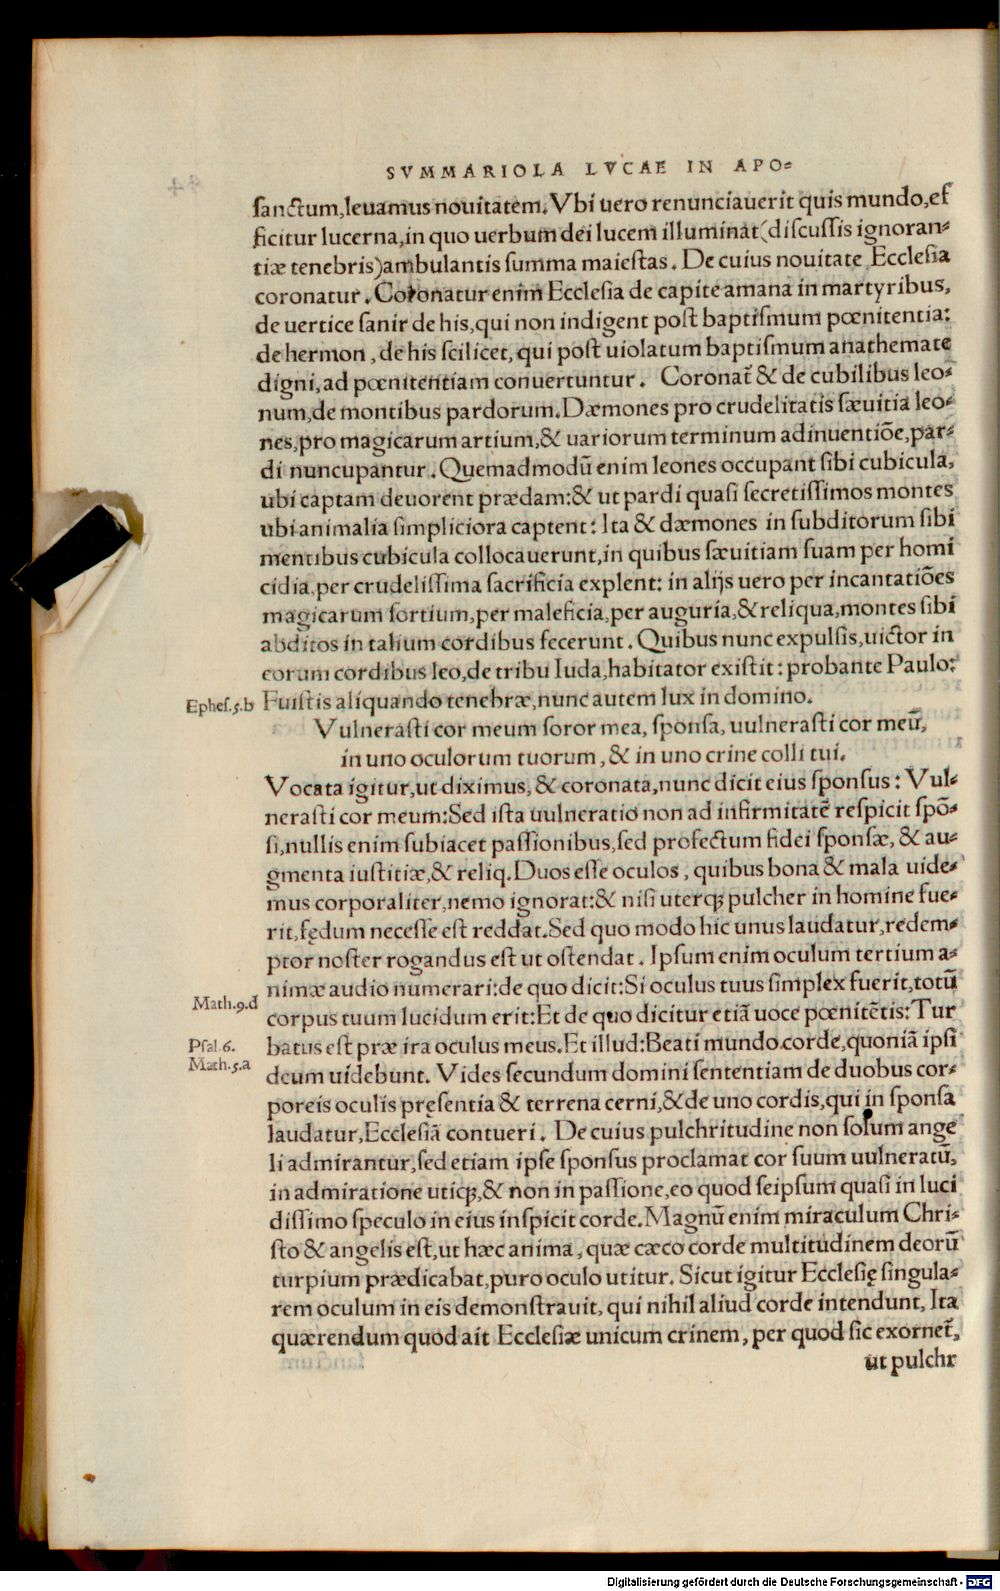 SVMMARIOLA LVCAE IN APO-
ſanctum,leuamus nouitatem.Vbi uero renunciauerit quis mundo,ef
ficitur lucerna,in quo uerbum dei lucem illuminat(diſcuſſis ignoran-
tiæ tenebris)ambulantis ſumma maieſtas. De cuius nouitate Eccleſia
coronatur. Coronatur enim Eccleſia de capite amana in martyribus,
de uertice ſanir de his,qui non indigent poſt baptiſmum pœnitentia:
de hermon, de his ſcilicet, qui poſt uiolatum baptiſmum anathemate
digni,ad pœnitentiam conuertuntur. Coronat̃ & de cubilibus leo-
num,de montibus pardorum.Dæmones pro crudelitatis ſæuitia leo-
nes,pro magicarum artium,& uariorum terminum adinuentiõe,par-
di nuncupantur. Quemadmodũ enim leones occupant ſibi cubicula,
ubi captam deuorent prædam:& ut pardi quaſi ſecretiſſimos montes
ubi animalia ſimpliciora captent: Ita & dæmones in ſubditorum ſibi
mentibus cubicula collocauerunt,in quibus ſæuitiam ſuam per homi
cidia,per crudeliſſima ſacrificia explent: in alijs uero per incantatiões
magicarum ſortium,per maleficia,per auguria,& reliqua,montes ſibi
abditos in talium cordibus fecerunt. Quibus nunc expulſis,uictor in
eorum cordibus leo,de tribu Iuda,habitator exiſtit: probante Paulo:
Epheſ.5.b Fuiſtis aliquando tenebræ,nunc autem lux in domino.
Vulneraſti cor meum ſoror mea, ſponſa, uulneraſti cor meũ,
in uno oculorum tuorum, & in uno crine colli tui.
Vocata igitur,ut diximus, & coronata,nunc dicit eius ſponſus: Vul-
neraſti cor meum:Sed iſta uulneratio non ad infirmitatẽ reſpicit ſpõ-
ſi,nullis enim ſubiacet paſſionibus,ſed profectum fidei ſponſæ, & au-
gmenta iuſtitiæ,& reliq.Duos eſſe oculos, quibus bona & mala uide-
mus corporaliter,nemo ignorat:& niſi uterqꝫ pulcher in homine fue-
rit,fędum neceſſe eſt reddat.Sed quo modo hic unus laudatur,redem-
ptor noſter rogandus eſt ut oſtendat. Ipſum enim oculum tertium a-
nimæ audio numerari:de quo dicit:Si oculus tuus ſimplex fuerit,totũ
Math.9.d
corpus tuum lucidum erit:Et de quo dicitur etiã uoce pœnitẽtis: Tur
Pſal.6. batus eſt præ ira oculus meus.Et illud:Beati mundo corde,quoniã ipſi
Math.5.a deum uidebunt. Vides ſecundum domini ſententiam de duobus cor-
poreis oculis pręſentia & terrena cerni,& de uno cordis,qui in ſponſa
laudatur,Eccleſiã contueri. De cuius pulchritudine non ſolum ange
li admirantur,ſed etiam ipſe ſponſus proclamat cor ſuum uulneratũ,
in admiratione utiqꝫ,& non in paſſione,eo quod ſeipſum quaſi in luci
diſſimo ſpeculo in eius inſpicit corde.Magnũ enim miraculum Chri-
ſto & angelis eſt,ut hæc anima, quæ cæco corde multitudinem deorũ
turpium prædicabat,puro oculo utitur. Sicut igitur Eccleſię ſingula-
rem oculum in eis demonſtrauit, qui nihil aliud corde intendunt, Ita
quærendum quod ait Eccleſiæ unicum crinem, per quod ſic exornet̃,
ut pulchr
Digitalisierung gefördert durch die Deutsche Forschungsgemeinschaft - DFG